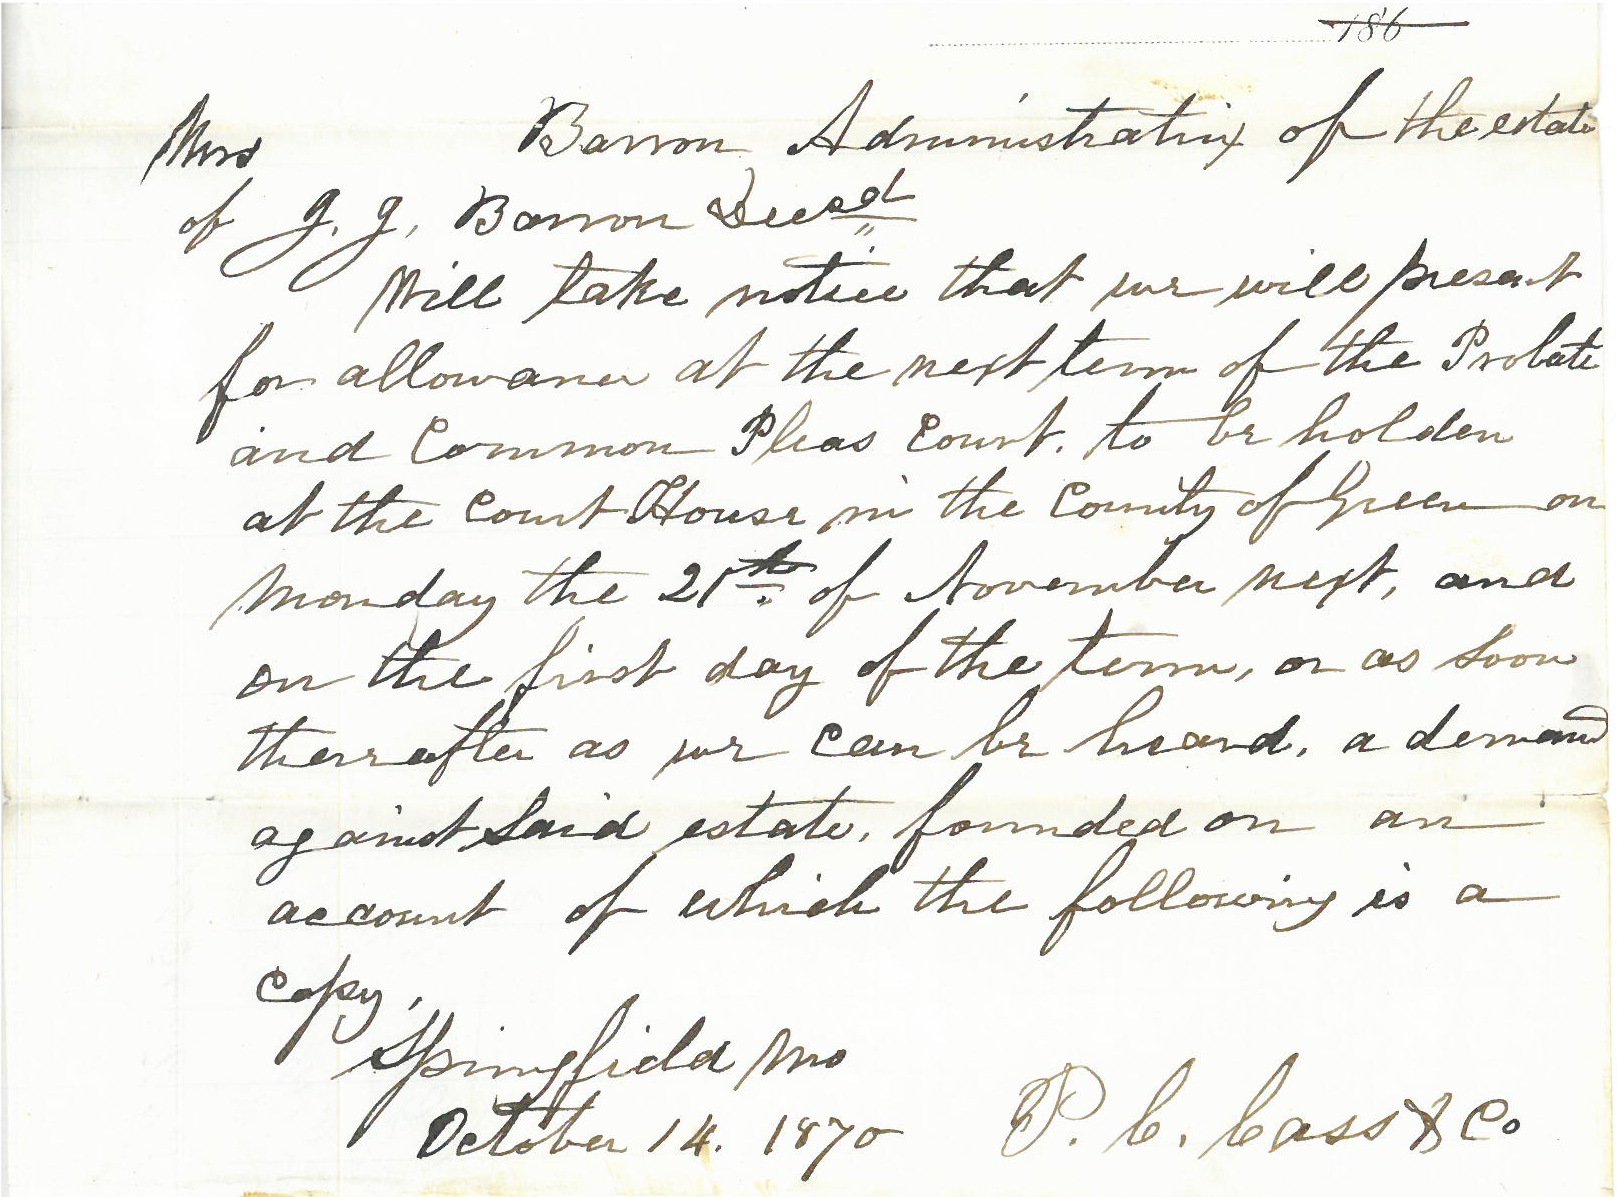 186
Mrs Barron Administratrix of the estate
of J. J. Barron Decsd
Will take notice that we will present
for allowance at the next term of the Probate
and Common Pleas Court. to be holden
at the Court House in the County of Green on
Monday the 21th of November next, and
on the first day of the term, or as soon
thereafter as we can be heard, a demand
against said estate, founded on an
account of which the following is a
copy,
Springfield Mo
October 14. 1870 P. C. Cass & Co